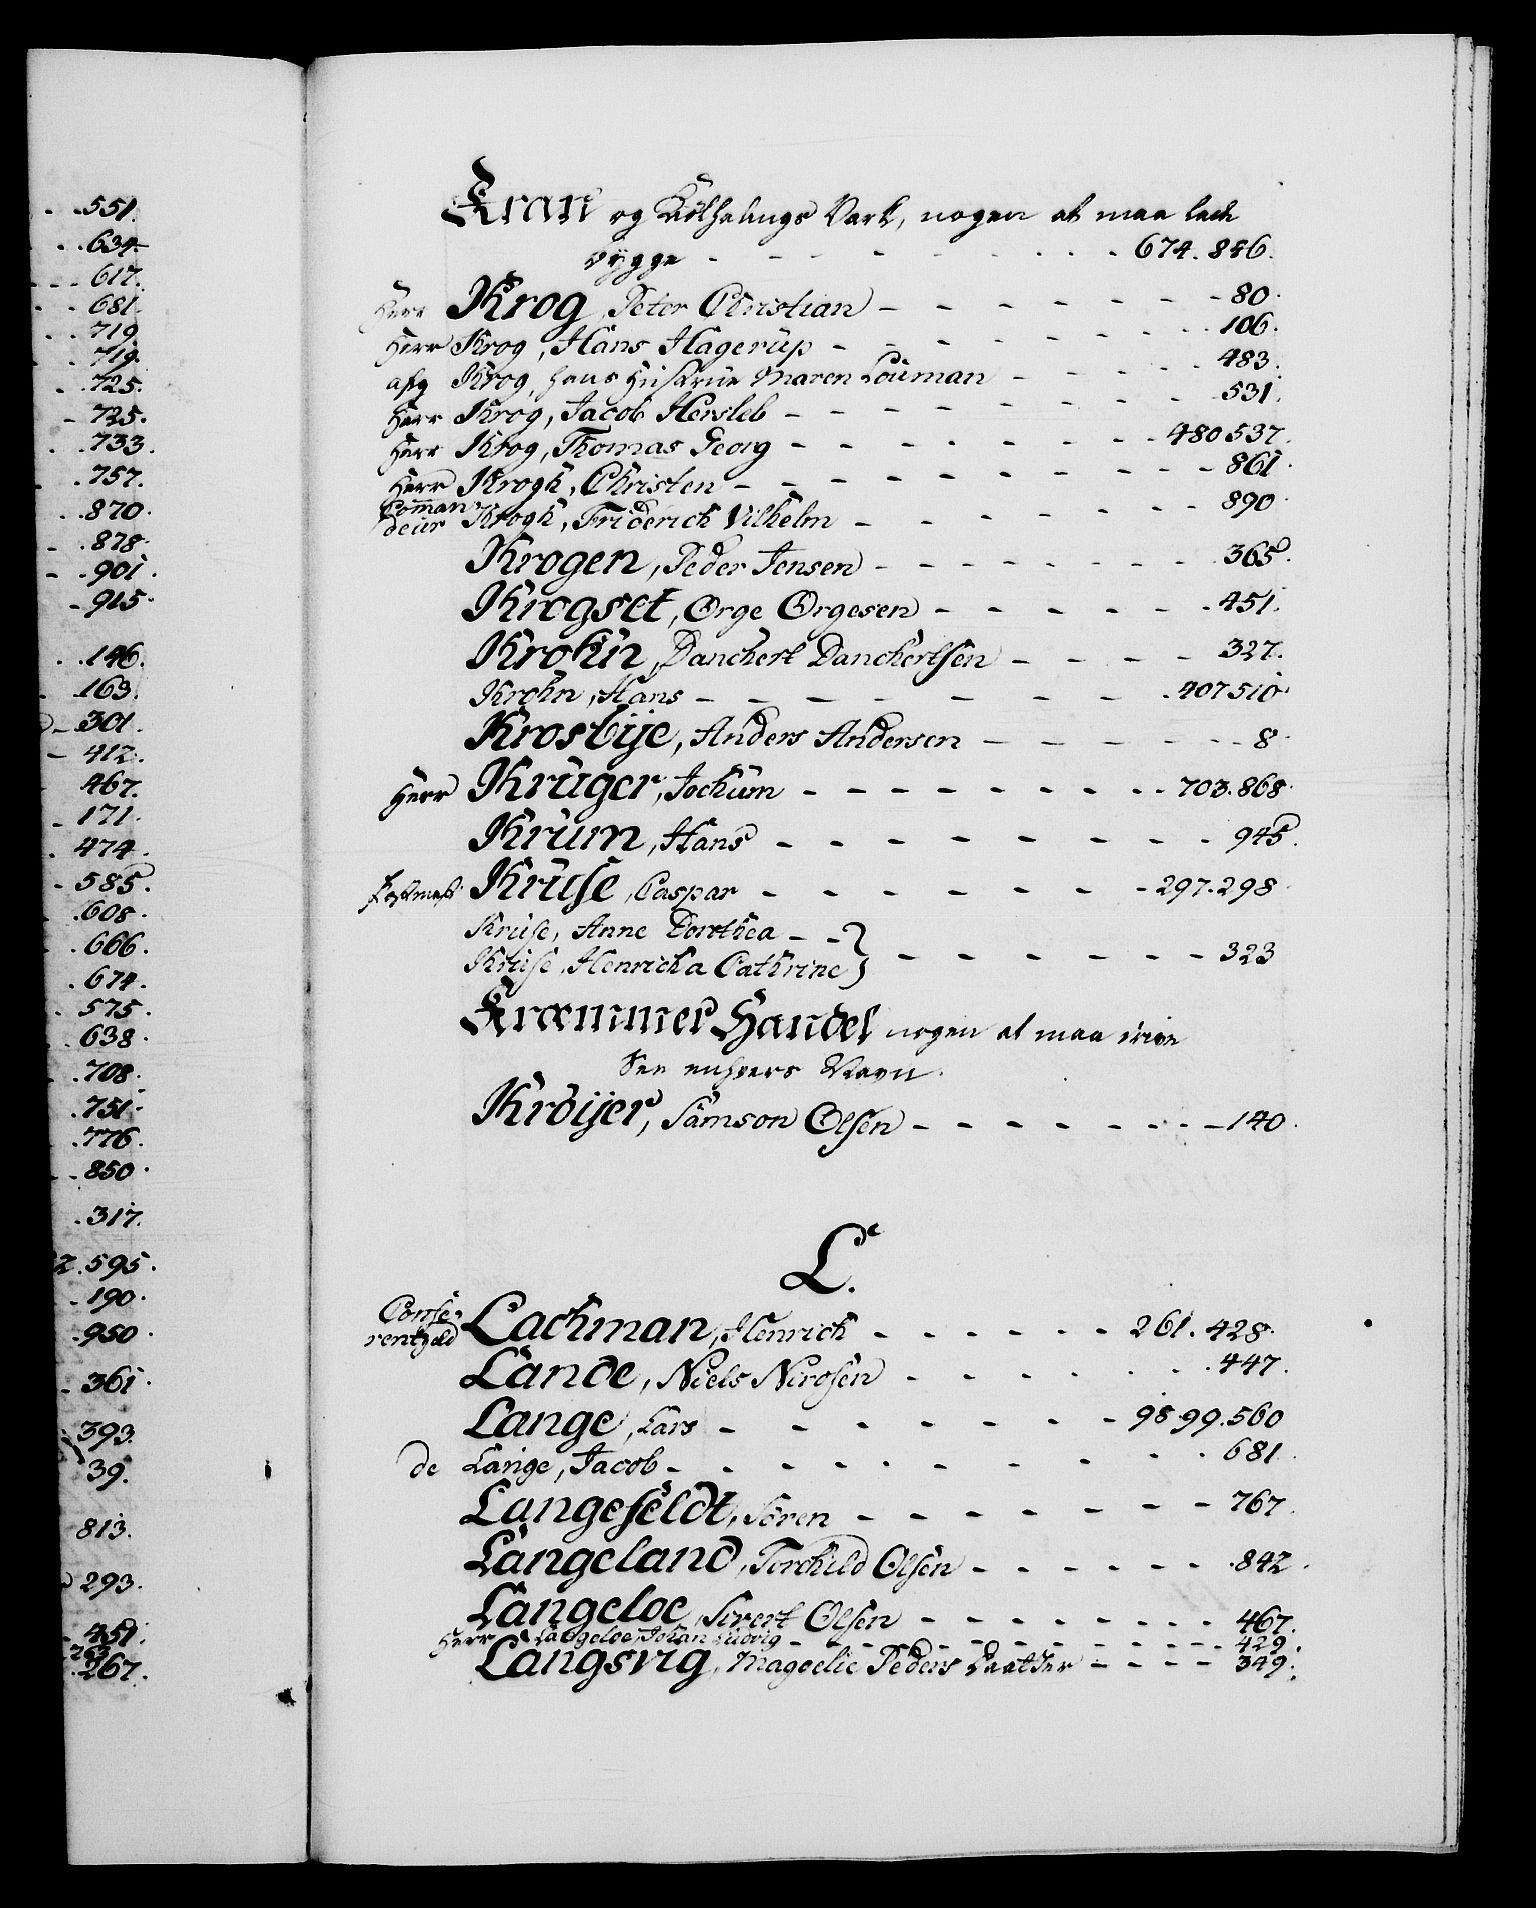 551.
634.
617.
681.
719.
719.
725.
725.
733.
757.
870.
878.
901.
915.
146.
163.
301.
412.
467.
171.
474.
585.
608.
666.
674.
575.
638.
708.
751.
776.
850.
317.
2.595.
190.
950.
361.
393.
39.
813.
293.
451.
267.
Kran og Kiølhalings Værk, nogen at maa lade
bygge - - - - 674. 886.
Herr Krog, Peter Christian - - - - 80.
Herr Krog, Hans Hagerup - - - - 106.
afg Krog, hans Hustrue Maren Löuman - - - - 483.
Herr Krog, Jacob Hersleb - - - - 531.
Herr Krog, Thomas Georg - - - - 480 537.
Herr Krogh, Christen - - - - 861.
Coman
deur Krogh, Friderich Vilhelm - - - - 890.
Krogen, Peder Jensen - - - - 365.
Krogset, Orge Orgesen - - - - 451.
Krohn, Danchert Danchertsen - - - - 327.
Krohn, Hans - - - - 407 510.
Krosbije, Anders Andersen - - - - 8.
Herr Krüger, Jochum - - - - 703. 868.
Krum, Hans - - - - 945.
Postmest. Kruse, Caspar - - - - 297. 298.
Kruse, Anne Dorothea - -
Kruse, Henricka Cathrine } - - - - 323
Kræmmer Handel nogen at maa drive
See enhvers Navn.
Kröijer, Samson Olsen - - - - 140.
L.
Confe-
rentzräd Lachman, Henrich - - - - 261. 428.
Lande, Niels Nirosen - - - - 447.
Lange, Lars - - - - 98. 99. 560
de Lange, Jacob - - - - 681.
Langefeldt, Sören - - - - 767.
Langeland, Torchild Olsen - - - - 842.
Langeloe, Sivert Olsen - - - - 467.
Herr Langeloe, Johan Ludvig - - - - 429.
Langsvig, Magdelie Peders Daatter - - - - 349.